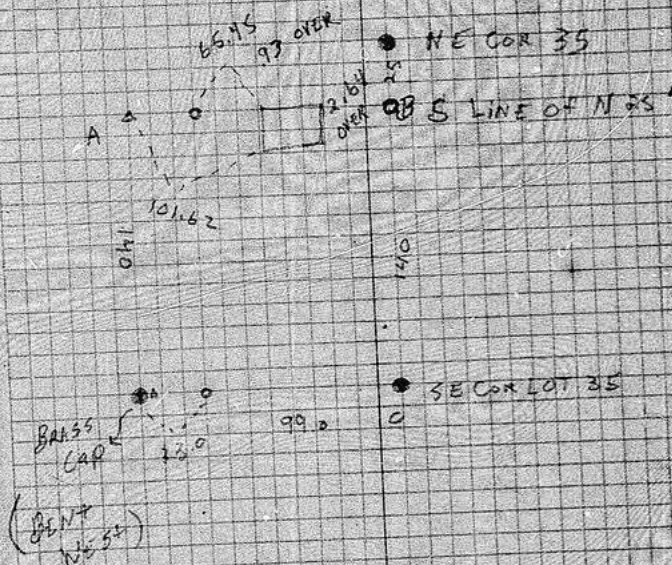 66.45
93 OVER
NE COR 35
25
2.64
OVER
B S LINE OF N 25'
A
101.62
140
140
SE COR LOT 35
BRASS
CAP
13.0
99.
0
(BENT
WEST)